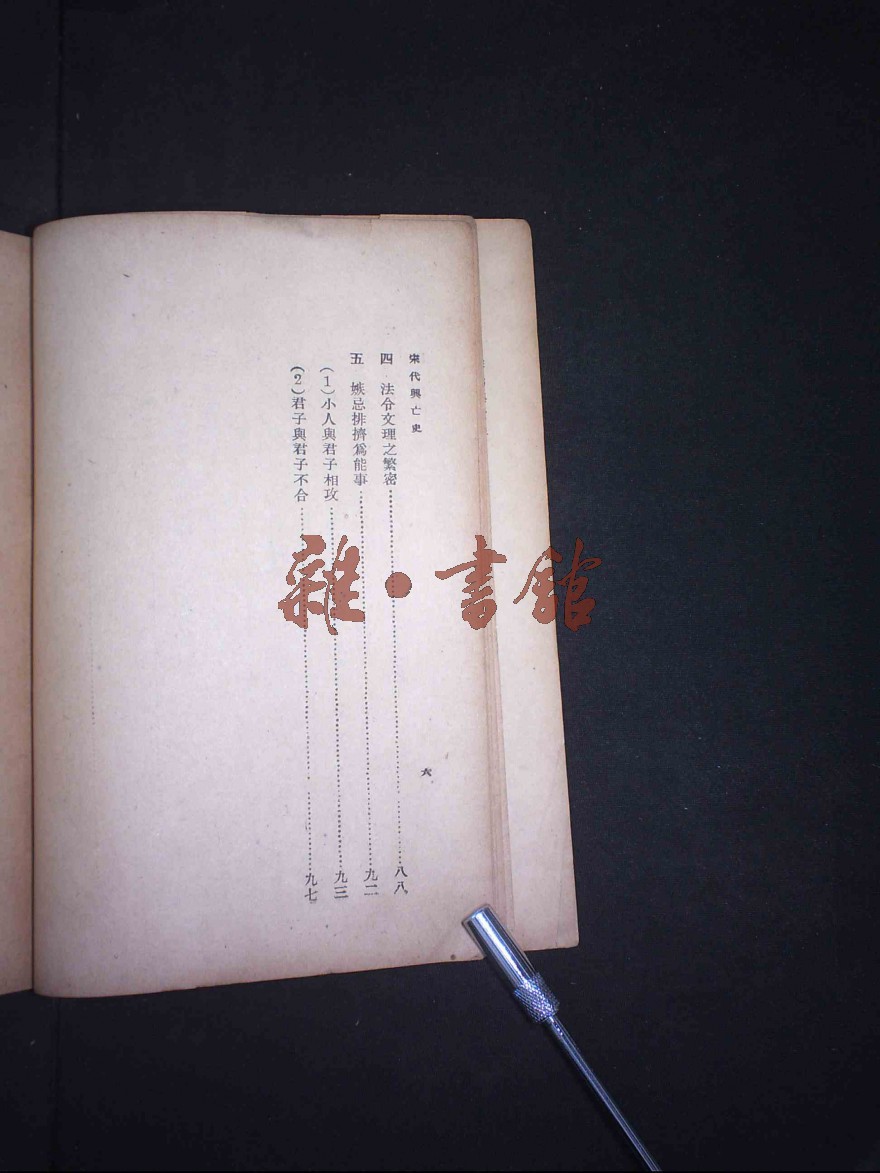 宋代興亡史
六
四 法令文理之繁密……八八
五 嫉忌排擠爲能事……九二
(1)小人與君子相攻……九三
(2)君子與君子不合……九七
雜·書館